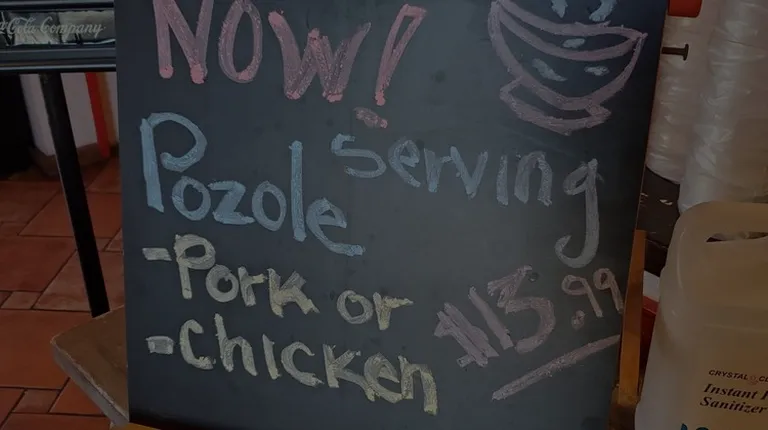 Coca-Cola Company
NOW!
serving
Pozole
-Pork or
-Chicken
$13.99
CRYSTAL
Instant
Sanitizer